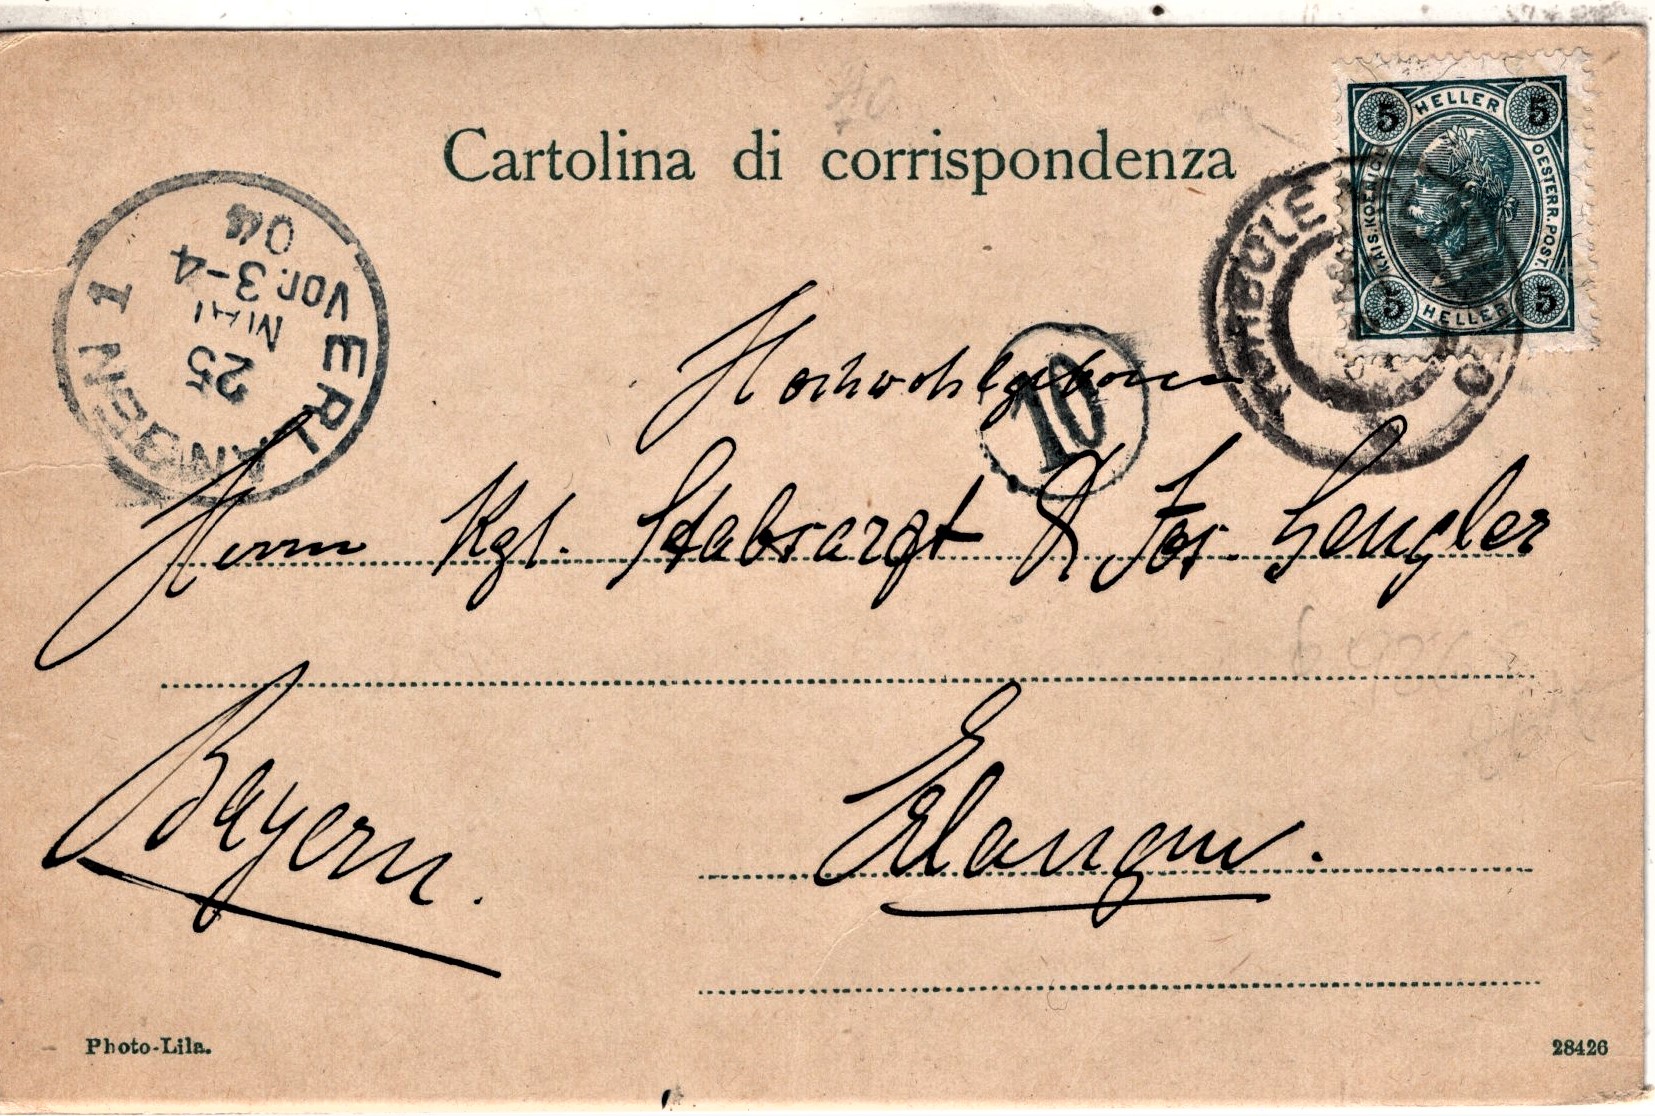 Cartolina di corrispondenza
5 HELLER 5
KAIS. KOENIGL.
OESTERR. POST.
5 HELLER 5
TORBOLE
25
MAI
Vor. 3-4
04
1
10
Hochwohlgeboren
Herrn Kgl. Stabsarzt Jos. Lengler
Erlangen.
Bayern.
Photo-Lila.
28426